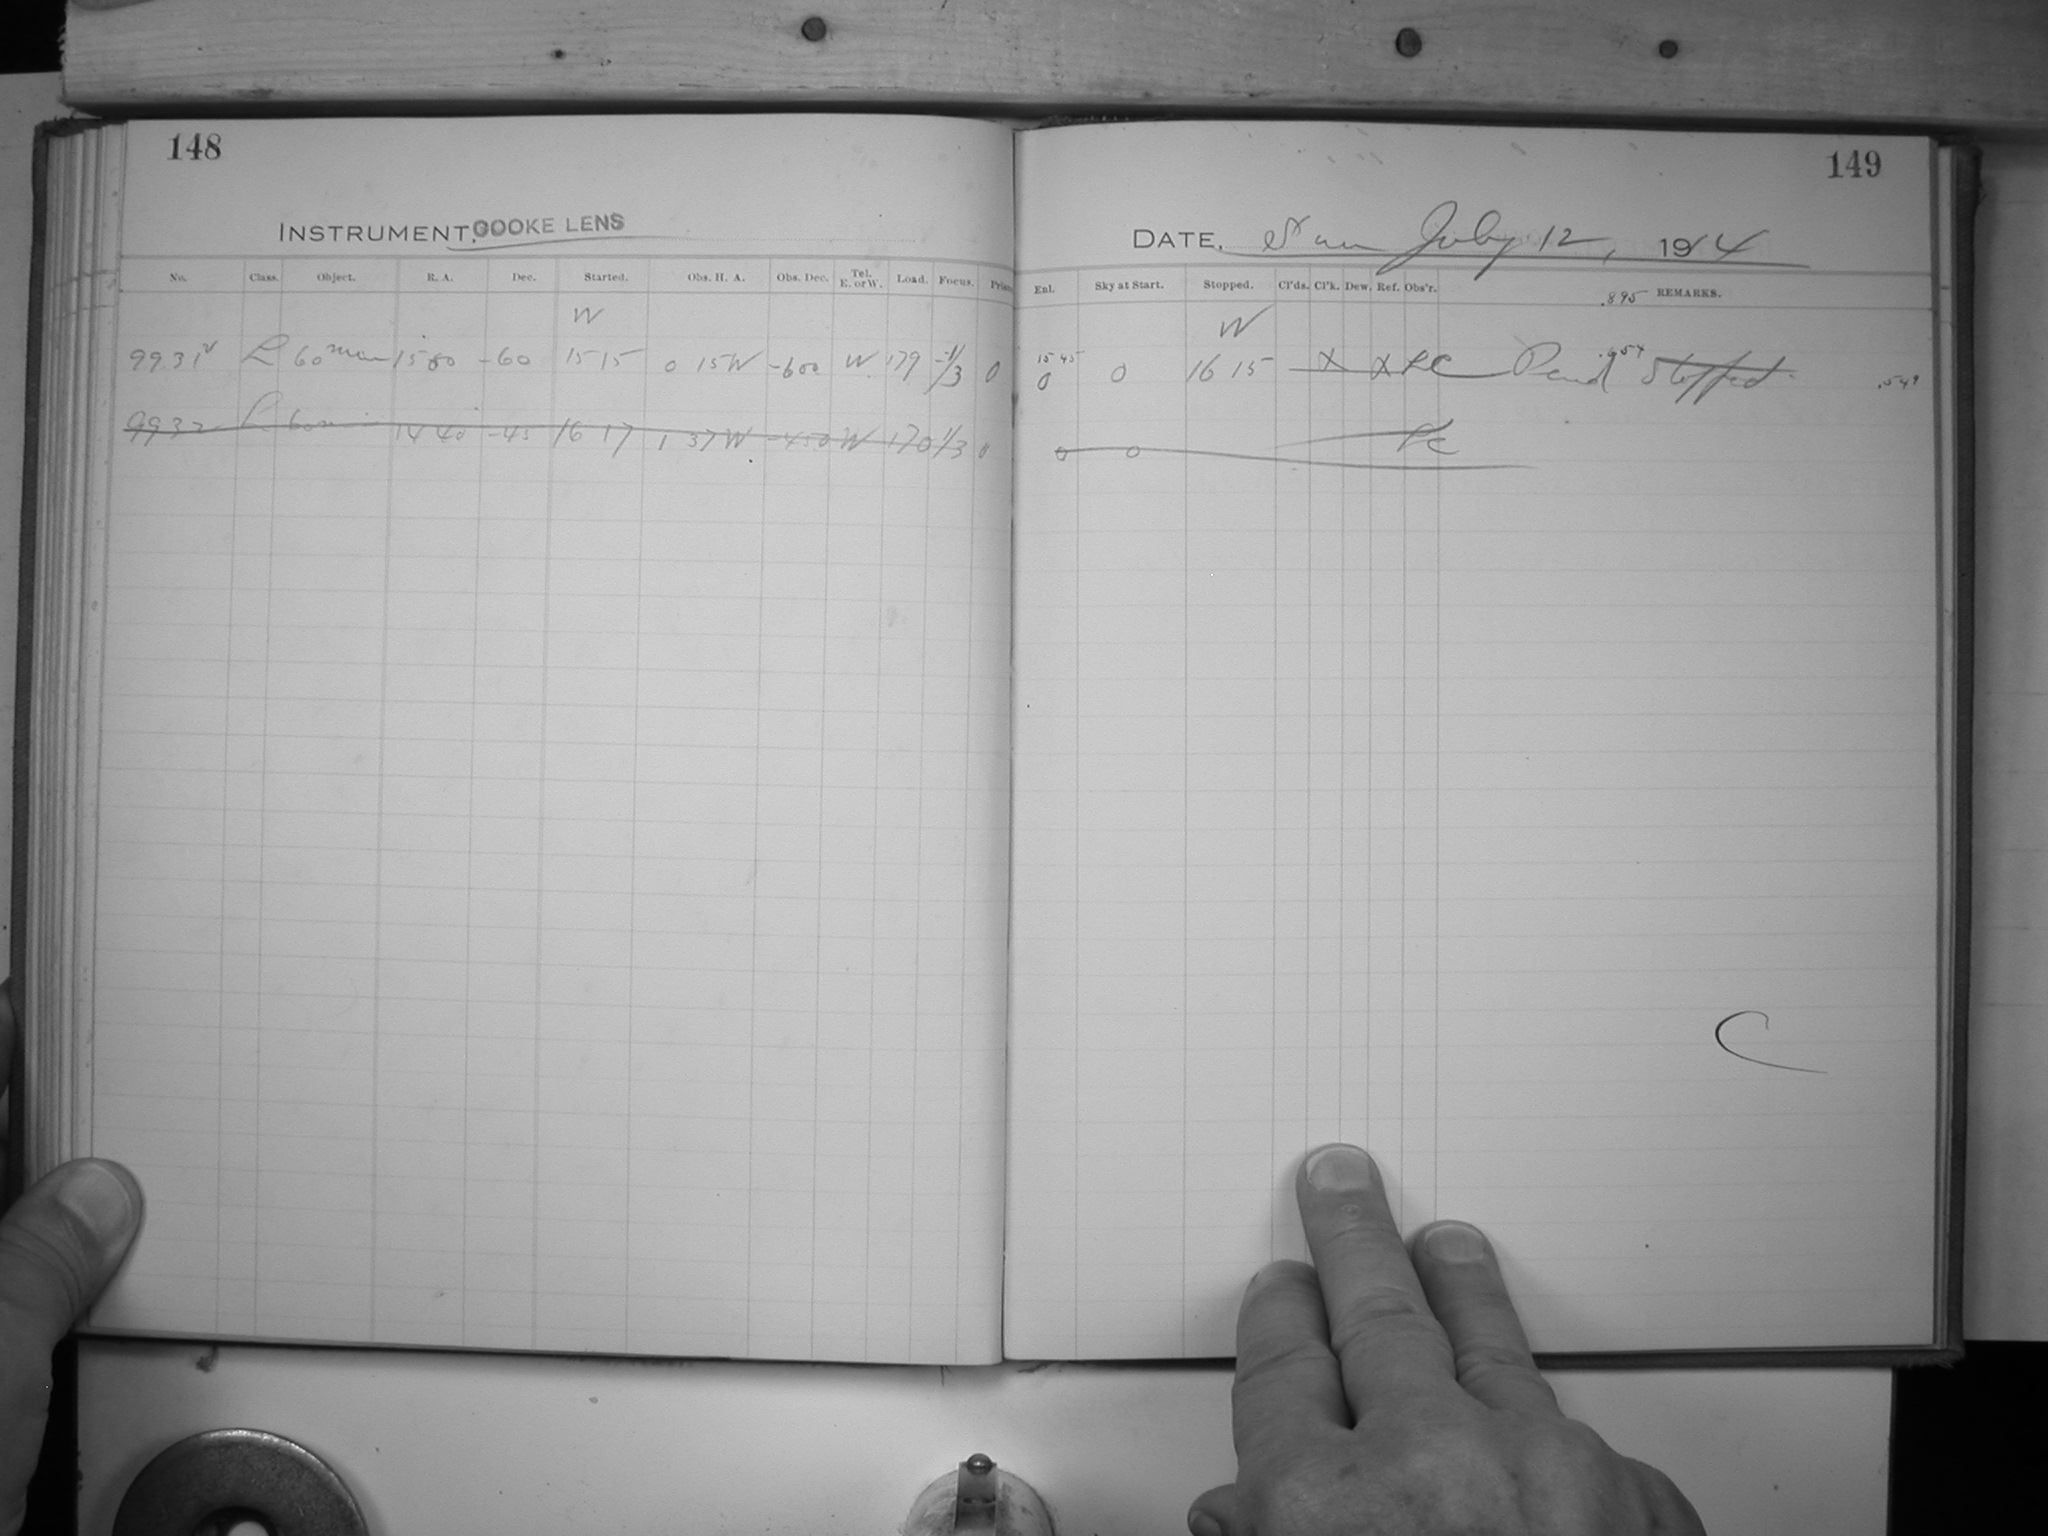 148
INSTRUMENT, COOKE LENS
No. Class. Object. R. A. Dec. Started. Obs. H. A. Obs. Dec. Tel. E. or W. Load. Focus. Prism
W
9931 L 60 min 15 00 -60 15 15 0 15 W -60 0 W 179 -1/3 0
9932 L 60 14 40 -45 16 17 1 37 W -45 0 W 170 1/3 0
149
DATE, Sun July 12, 1914
Enl. Sky at Start. Stopped. Cl'ds. Cl'k. Dew. Ref. Obs'r. .895 REMARKS.
W
15 45
0 0 16 15 X X LC Pend Stopped .549
0 0 LC
C